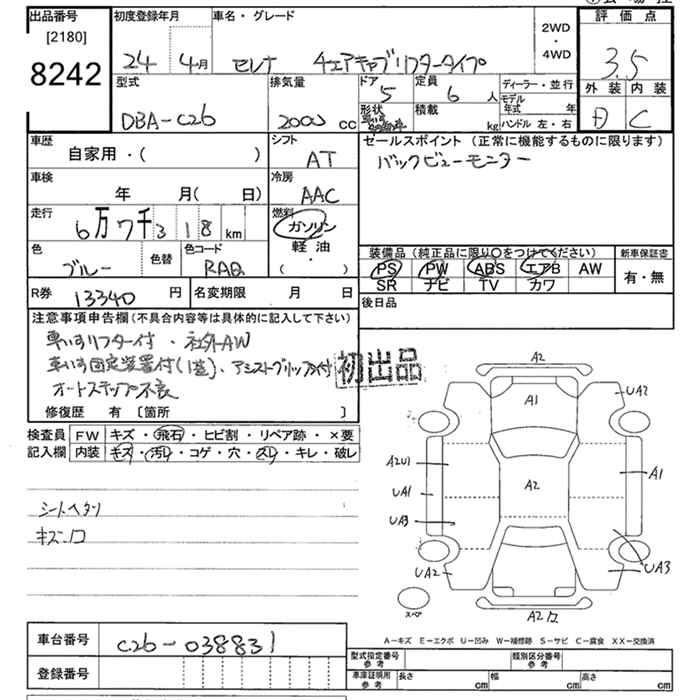 出品番号 初度登録年月 車名・グレード 2WD・4WD 評価点
[2180]
8242 24年 4月 セレナ チェアキャブリフタータイプ 3.5
型式 排気量 ドア 定員 ディーラー・並行 外装 内装
DBA-C26 2000 cc 5 6人 モデル年式 年 D C
形状 積載 kg ハンドル 左・右
車歴 シフト セールスポイント (正常に機能するものに限ります)
自家用・( ) AT バックビューモニター
車検 冷房
年 月( 日) AAC
走行 燃料
6万7千318km ガソリン・軽油・( )
色 色替 色コード 装備品 (純正品に限り○をつけてください) 新車保証書
ブルー RAQ PS PW ABS エアB AW 有・無
SR ナビ TV カワ
R券 13340円 名変期限 月 日 後日品
注意事項申告欄(不具合内容等は具体的に記入して下さい)
車いすリフター付・社外AW
車いす固定装置付(1基)、アシストグリップ付
オートステップ不良
初出品
修復歴 有 [箇所 ]
検査員 FW キズ・飛石・ヒビ割・リペア跡・×要
記入欄 内装 キズ・汚レ・コゲ・穴・スレ・キレ・破レ
シートヘタリ
キズ.穴
A2
A1
UA2
A2U1
A1
UA1
A2
UA3
UA2
UA3
A2
スペア
A-キズ E-エクボ U-凹み W-補修跡 S-サビ C-腐食 XX-交換済
車台番号 C26-038831
登録番号
型式指定番号 参考 類別区分番号 参考
車庫証明用 参考 長さ cm 幅 cm 高さ cm